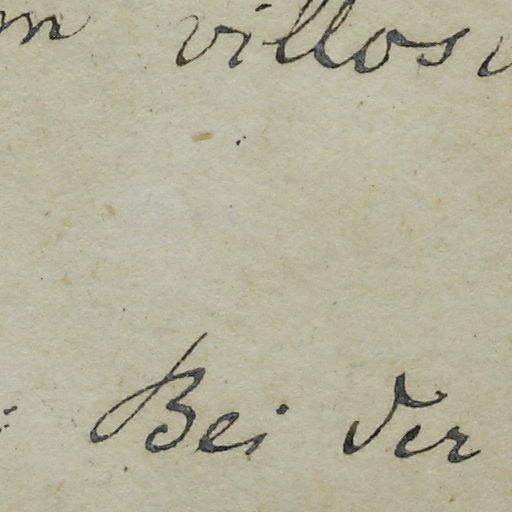 villos
Bei der